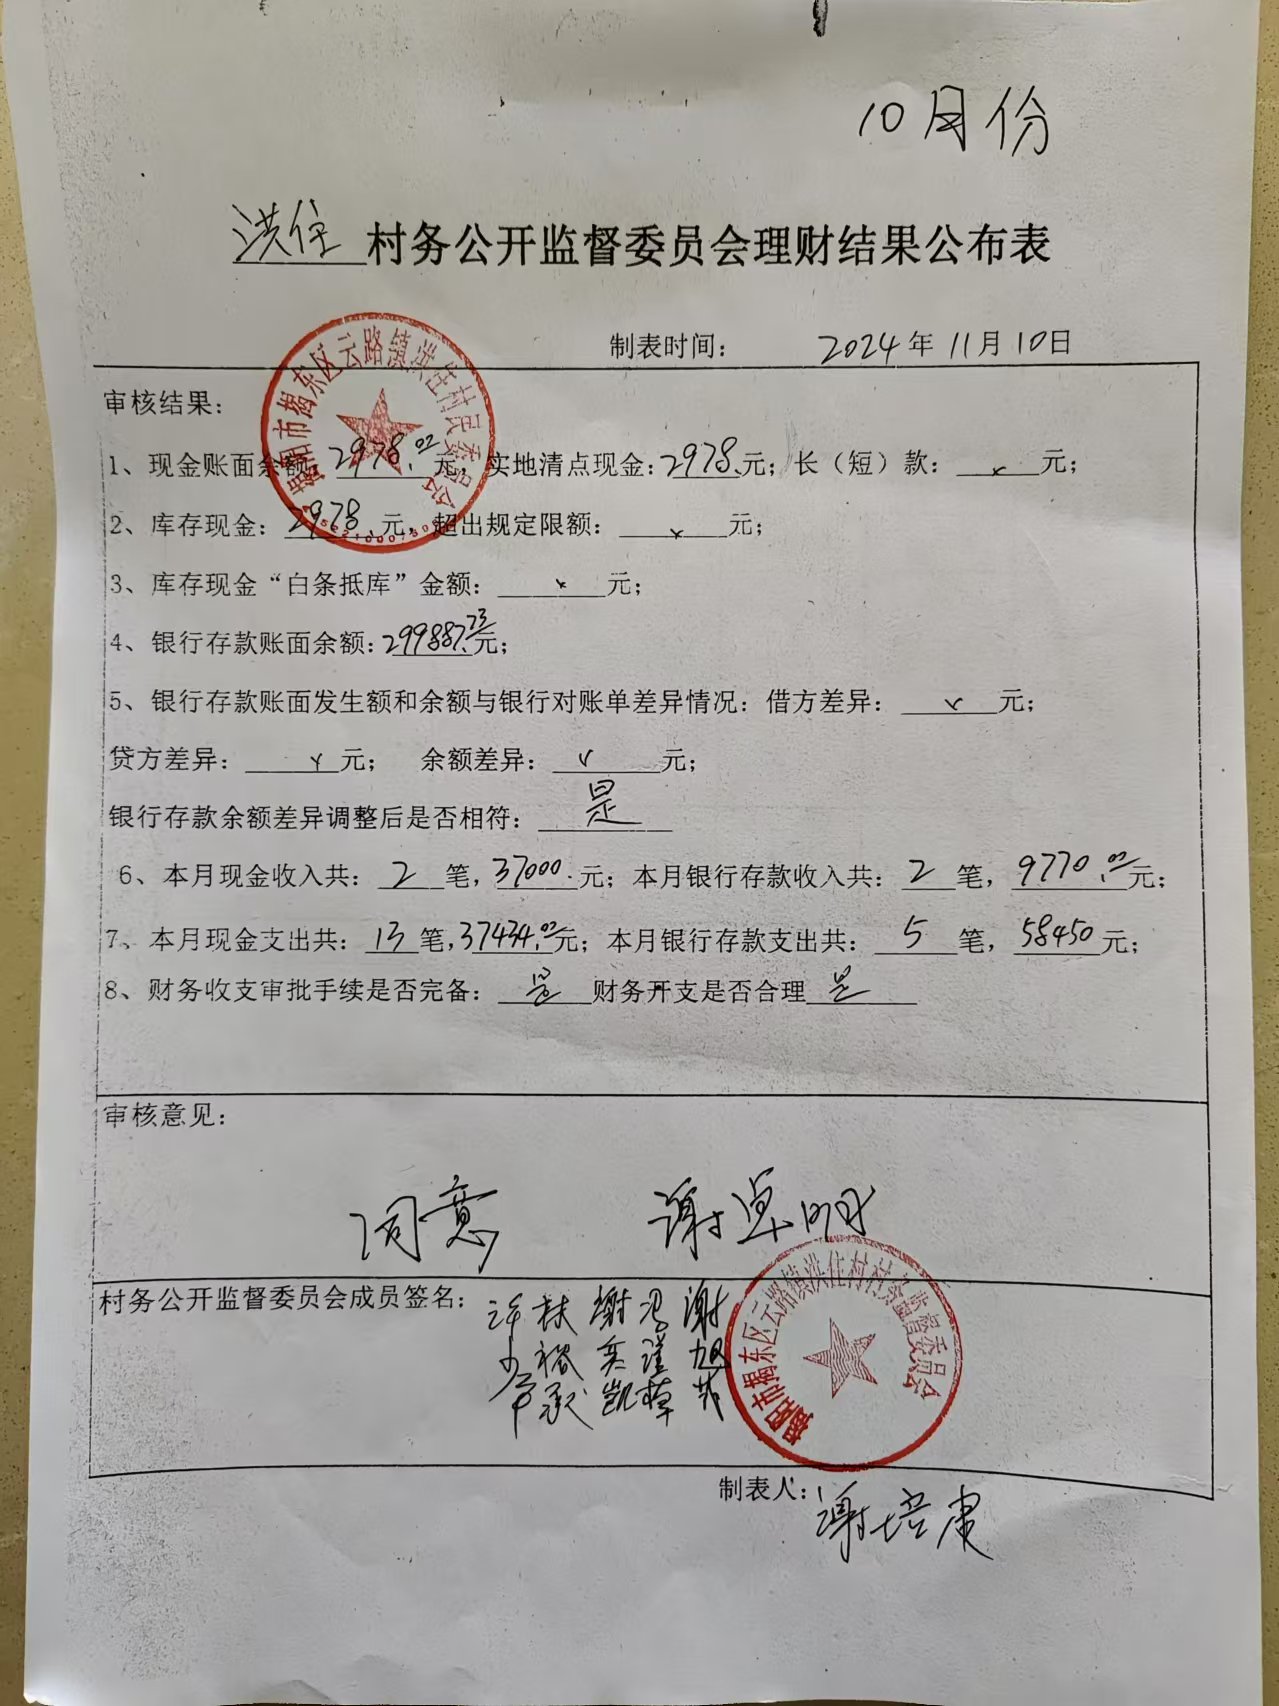 10月份
洪住村务公开监督委员会理财结果公布表
制表时间: 2024年11月10日
审核结果:
1、现金账面余额: 2978.02元; 实地清点现金: 2978.元; 长（短）款: x元;
2、库存现金: 2978元, 超出规定限额: x元;
3、库存现金“白条抵库”金额: x元;
4、银行存款账面余额: 299887.73元;
5、银行存款账面发生额和余额与银行对账单差异情况: 借方差异: x元;
贷方差异: x元; 余额差异: x元;
银行存款余额差异调整后是否相符: 是
6、本月现金收入共: 2笔, 37000.元; 本月银行存款收入共: 2笔, 9770.02元;
7、本月现金支出共: 13笔, 37434.02元; 本月银行存款支出共: 5笔, 58450元;
8、财务收支审批手续是否完备: 是 财务开支是否合理 是
审核意见:
同意 谢卓明
村务公开监督委员会成员签名: 许少 林裕承 谢奕凯 谢旭
制表人: 谢培
揭阳市揭东区云路镇洪住村民委员会
揭阳市揭东区云路镇洪住村村务监督委员会